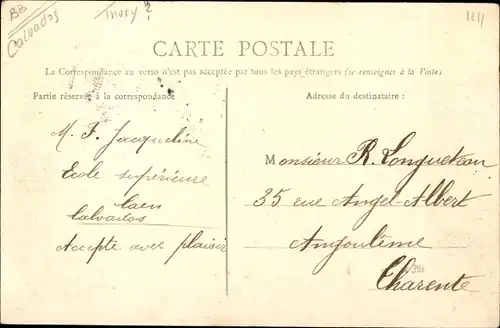 BB
Calvados
Thury ?
1211
CARTE POSTALE
La Correspondance au verso n'est pas acceptée par tous les pays étrangers (se renseigner à la Poste)
Partie réservée à la correspondance
Adresse du destinataire :
M. F. Jacqueline
École supérieure
Caen
Calvados
Accepte avec plaisir
Monsieur R. Longueteau
35 rue Angel-Albert
Angoulême
Charente